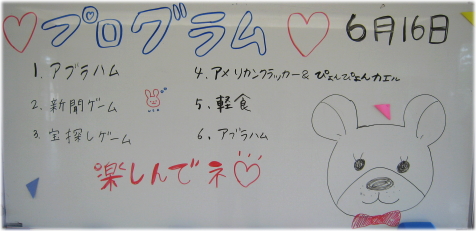 ♡プログラム♡ 6月16日
1. アブラハム
2. 新聞ゲーム
3. 宝探しゲーム
4. アメリカンクラッカー& ぴょんぴょんカエル
5. 軽食
6. アブラハム
楽しんでネ♡